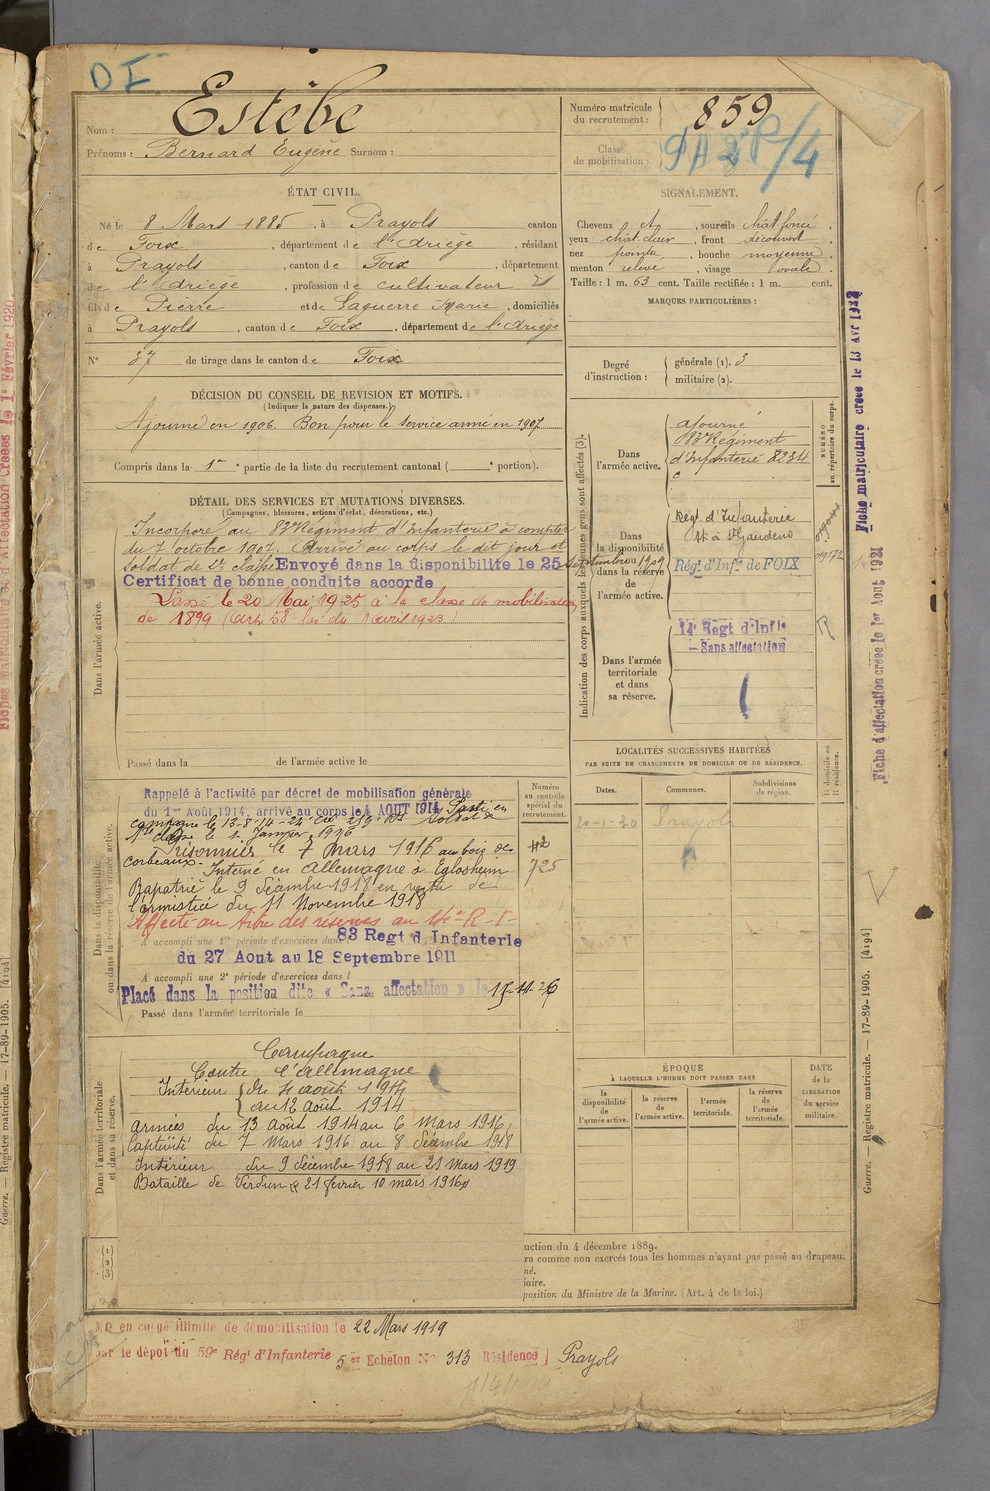 DI
Nom : Estèbe
Prénoms : Bernard Eugène Surnom :
Numéro matricule du recrutement : 859
Classe de mobilisation :
ÉTAT CIVIL.
Né le 8 Mars 1885, à Prayols canton
de Foix, département de l'Ariège, résidant
à Prayols, canton de Foix, département
de l'Ariège, profession de cultivateur
fils de Pierre et de Laguerre Marie, domiciliés
à Prayols, canton de Foix, département de l'Ariège
N° 37 de tirage dans le canton de Foix
SIGNALEMENT.
Cheveux et, sourcils chât foncé,
yeux chât. clair, front découvert,
nez pointu, bouche moyenne,
menton relevé, visage ovale.
Taille : 1 m. 63 cent. Taille rectifiée : 1 m. cent.
MARQUES PARTICULIÈRES :
Degré d'instruction : générale (1). 3
militaire (2).
DÉCISION DU CONSEIL DE REVISION ET MOTIFS.
(Indiquer la nature des dispenses.)
Ajourné en 1906. Bon pour le service armé en 1907
Compris dans la 1re partie de la liste du recrutement cantonal ( e portion).
DÉTAIL DES SERVICES ET MUTATIONS DIVERSES.
(Campagnes, blessures, actions d'éclat, décorations, etc.)
Dans l'armée active.
Incorporé au 83e Régiment d'Infanterie à compter
du 7 octobre 1907. Arrivé au corps le dit jour et
soldat de 2e classe Envoyé dans la disponibilité le 25 septembre 1909
Certificat de bonne conduite accordé
Passé le 20 Mai 1925 à la classe de mobilisation
de 1899 (Art. 58 loi du 1 avril 1923)
Passé dans la de l'armée active le
Indication des corps auxquels les jeunes gens sont affectés (3).
NUMÉRO au répertoire du corps.
Dans l'armée active.
ajourné
83e Régiment
d'Infanterie 8234
c
Dans la disponibilité ou dans la réserve de l'armée active.
Rég. d'Infanterie
St à St Gaudens
Régt d'Infie de FOIX
Dans l'armée territoriale et dans sa réserve.
14e Regt d'Infie
— Sans affectation
LOCALITÉS SUCCESSIVES HABITÉES
PAR SUITE DE CHANGEMENTS DE DOMICILE OU DE RÉSIDENCE.
Dates.
Communes.
Subdivisions de région.
D domicile ou R résidence.
20-1-30 Prayols
Dans la disponibilité ou dans la réserve de l'armée active.
Numéro au contrôle spécial du recrutement.
Rappelé à l'activité par décret de mobilisation générale
du 1er Août 1914, arrivé au corps le 4 AOUT 1914 Parti en
campagne le 13-8-14 - 24e Cie 259e RI Soldat de
1re classe le 1 Janvier 1916
Prisonnier le 7 Mars 1916 au bois des
corbeaux - Interné en Allemagne à Eglosheim
Rapatrié le 9 décembre 1918 en vertu de
l'armistice du 11 Novembre 1918
725
Affecté au titre des réserves au 14e R-I-
A accompli une 1re période d'exercices dans 83 Regt d Infanterie
du 27 Aout au 18 Septembre 1911
A accompli une 2e période d'exercices dans l
Placé dans la position dite « Sans affectation » le 15-11-26
Passé dans l'armée territoriale le
Dans l'armée territoriale et dans sa réserve.
Campagne
Contre l'Allemagne
Intérieur du 4 août 1914
au 12 Août 1914
Armées du 13 Août 1914 au 6 Mars 1916
Captivité du 7 Mars 1916 au 8 décembre 1918
Intérieur du 9 décembre 1918 au 21 Mars 1919
Bataille de Verdun 21 février 10 mars 1916
ÉPOQUE
À LAQUELLE L'HOMME DOIT PASSER DANS
la disponibilité de l'armée active.
la réserve de l'armée active.
l'armée territoriale.
la réserve de l'armée territoriale.
DATE de la LIBÉRATION du service militaire.
(1)
(2)
(3)
uction du 4 décembre 1889.
ra comme non exercés tous les hommes n'ayant pas passé au drapeau.
né.
iaire.
position du Ministre de la Marine. (Art. 4 de la loi.)
en congé illimité de démobilisation le 22 Mars 1919
par le dépot du 59e Régt d'Infanterie 5er Echelon N° 313 Résidence Prayols
Fiche matriculaire créée le 13 Avr 1922
Fiche d'affectation créée le 1er Aout 1921
Guerre. — Registre matricule. — 17-89-1905. [4194]
d'Affectation Créées le 1r Février 1920
Guerre. — Registre matricule. — 17-89-1905. [4194]